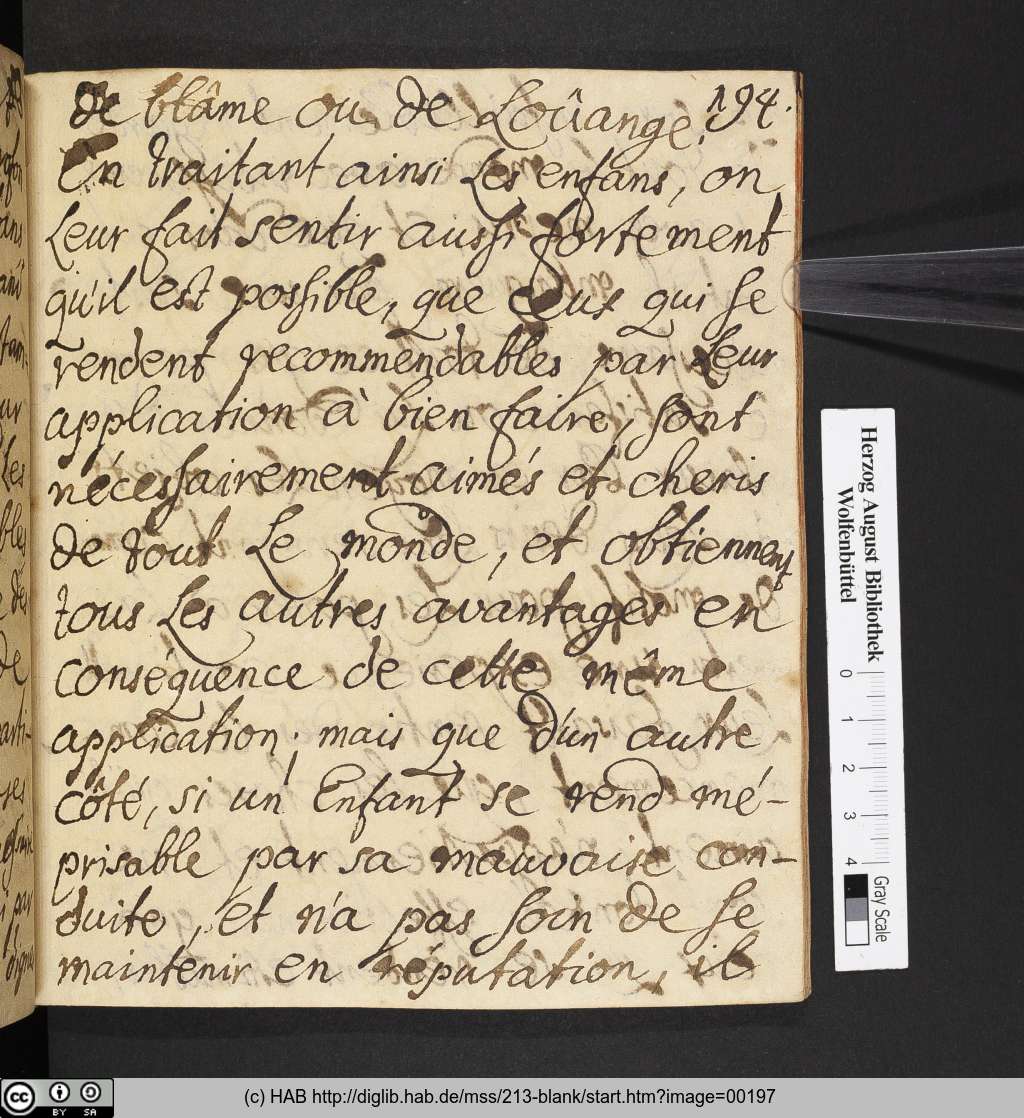 de blâme ou de Loûange. 194.
En traitant ainsi Les enfans, on
Leur fait sentir aussi fortement
qu'il est possible, que ceux qui se
rendent recommendables par Leur
application à bien faire, sont
nécessairement aimés et cheris
de tout Le monde, et obtiennent
tous Les autres avantages en
conséquence de cette même
application; mais que d'un autre
côté, si un Enfant se rend mé-
prisable par sa mauvaise con-
duite, et n'a pas soin de se
maintenir en réputation, il
Herzog August Bibliothek
Wolfenbüttel
0 1 2 3 4
Gray Scale
cc BY SA
(c) HAB http://diglib.hab.de/mss/213-blank/start.htm?image=00197